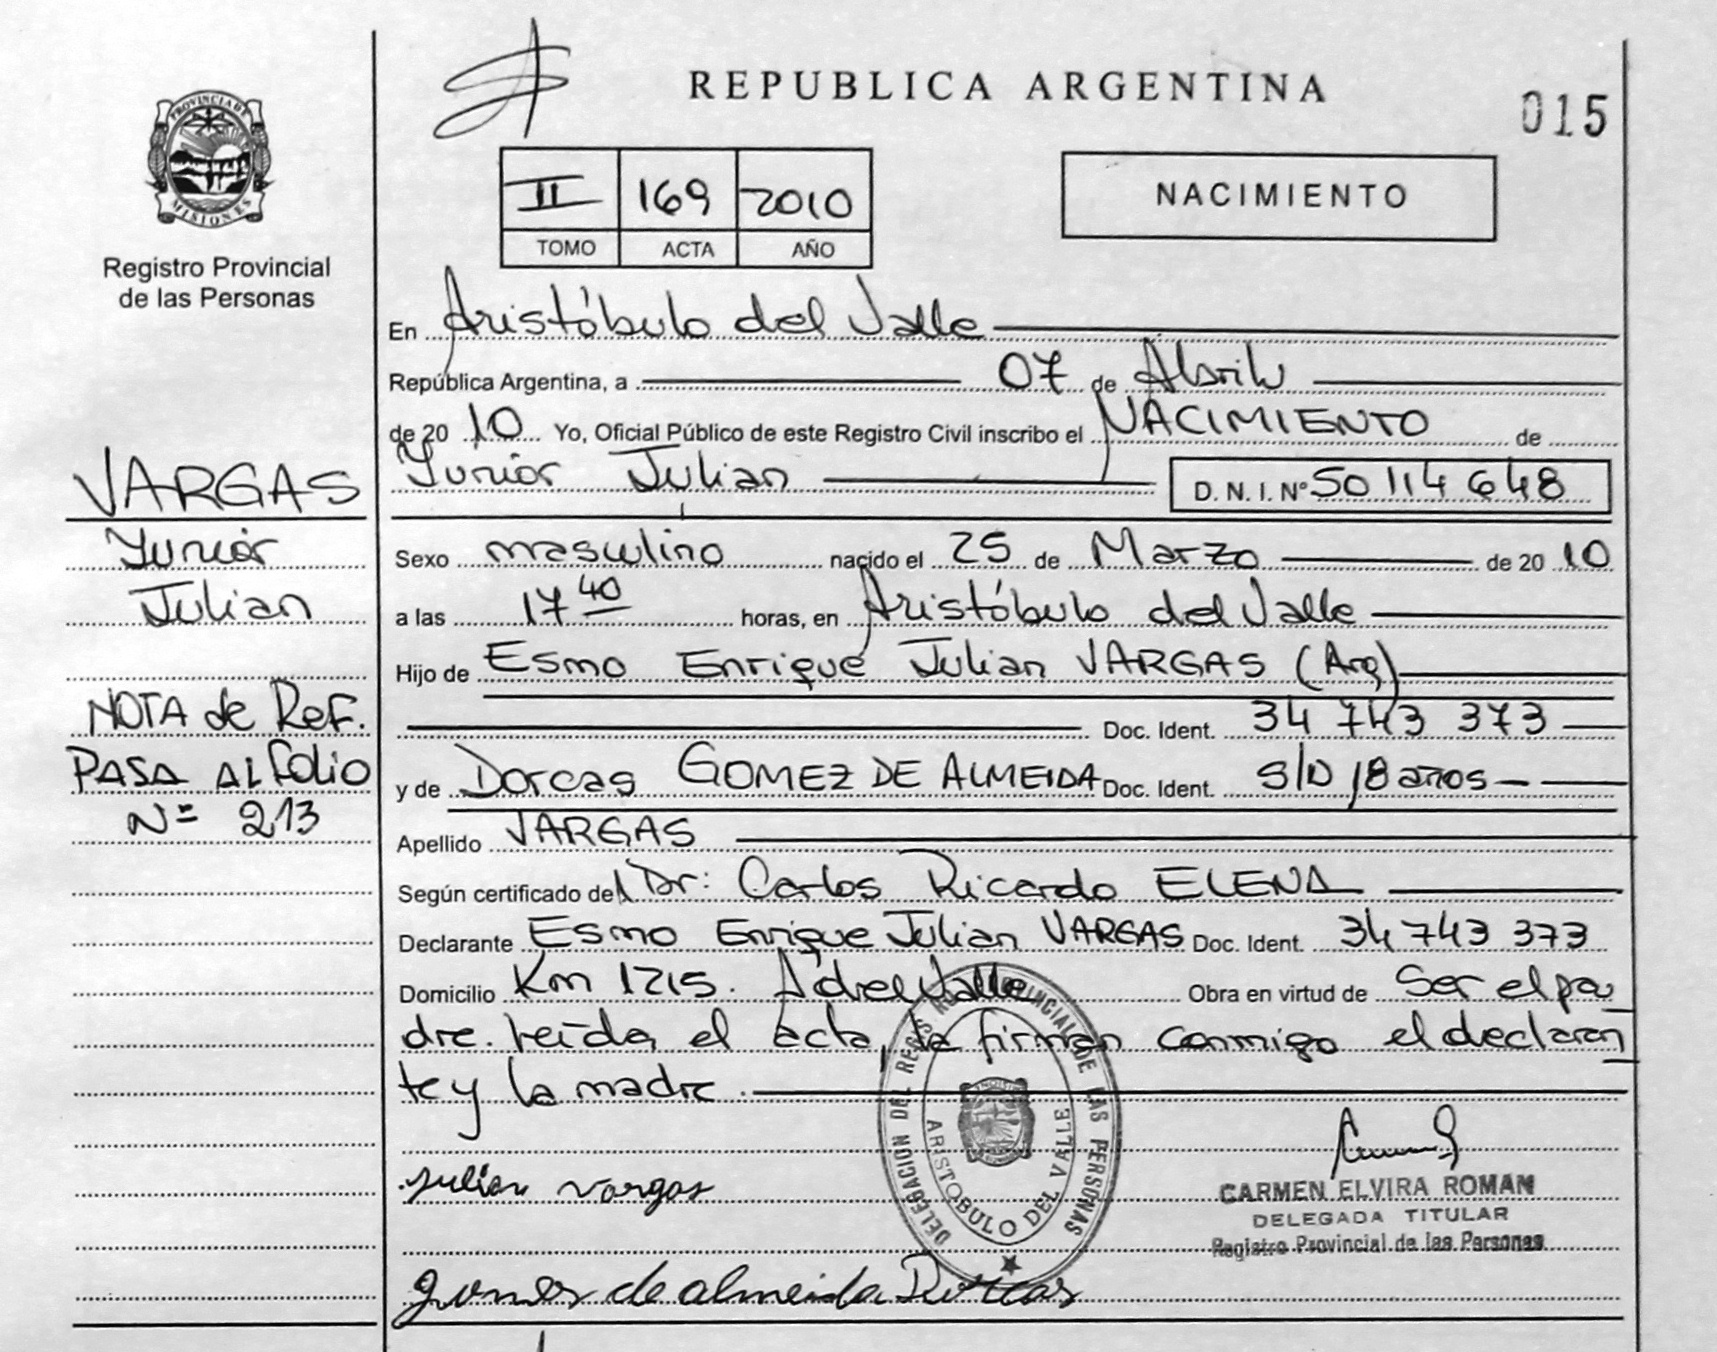 REPUBLICA ARGENTINA
015
PROVINCIA DE
MISIONES
Registro Provincial
de las Personas
II 169 2010
TOMO ACTA AÑO
NACIMIENTO
En Aristóbulo del Valle
República Argentina, a 07 de Abril
de 2010 Yo, Oficial Público de este Registro Civil inscribo el NACIMIENTO de
Yunior Julian D. N. I. Nº 50 114 648
VARGAS
Yunior
Julian
NOTA de Ref.
PASA AL folio
Nº 213
Sexo masculino nacido el 25 de Marzo de 2010
a las 17 40 horas, en Aristóbulo del Valle
Hijo de Esmo Enrique Julian VARGAS (Arg)
Doc. Ident. 34 743 373
y de Dorcas GOMEZ DE ALMEIDA Doc. Ident. S/D 18 años
Apellido VARGAS
Según certificado del Dr: Carlos Ricardo ELENA
Declarante Esmo Enrique Julian VARGAS Doc. Ident. 34 743 373
Domicilio Km 1215. A del Valle Obra en virtud de Ser el pa
dre. leída el acta, la firman conmigo el declaran
te y la madre.
DELEGACION DEL REGISTRO PROVINCIAL DE LAS PERSONAS
ARISTOBULO DEL VALLE
julian vargas
CARMEN ELVIRA ROMAN
DELEGADA TITULAR
Registro Provincial de las Personas
gomes de almeida Dorcas